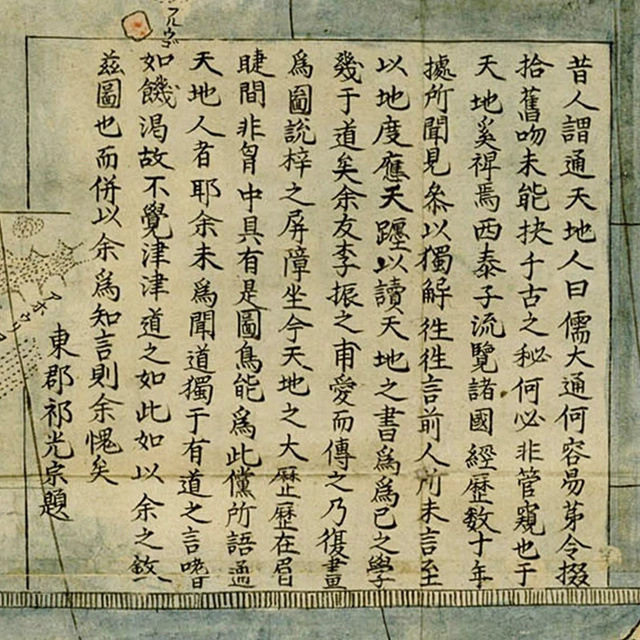 昔人謂通天地人曰儒夫通何容昜苐令掇
拾舊吻未能抉千古之秘何必非管窺也于
天地奚裨焉西泰子流覽諸國經歷数十年
據所聞見叅以獨解徃徃言前人所未言至
以地度應天躔以讀天地之書爲爲己之學
幾于道矣余友李振之甫愛而傳之乃復畫
爲圖說梓之屏障坐令天地之大歷歷在眉
睫間非胷中具有是圖烏能爲此儻所語通
天地人者耶余未爲聞道獨于有道之言嗜
如饑渴故不覺津津道之如此如以余之敘
茲圖也而併以余爲知言則余愧矣
東郡祁光宗題